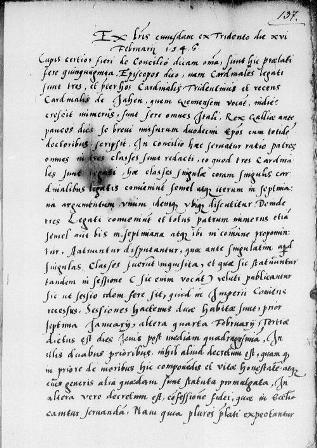 137.
Ex lris cuiusdam ex Tridento die xvi
Februarij 1546
Cupis certior fieri de Concilio dicam omnia, sunt hic prælati
fere quinquaginta. Episcopos dico, nam Cardinales legati
sunt tres, et præter hos Cardinalis Tridentinus et recens
Cardinalis de Jahen, quem vocat, indies
crescit numerus, sunt fere omnes Itali. Rex Galliæ ante
paucos dies se brevi missurum duodecim Epos cum totidem
doctoribus scripsit. In Concilio hæc servatur ratio patres
omnes in tres classes sunt redacti, eo quod tres Cardina
les sunt legati, hæ classes singulæ coram singulis car
dinalibus legatis conveniunt semel atque iterum in septima
na argumentum unum idemque ubique discutitur. Deinde
tres Legati conveniunt et totus patrum numerus etiam
semel aut bis in septimana atque ibi in commune proponun
tur, statuuntur disputantur, quæ ante singulatim apud
singulas Classes fuerunt inquisita, et quæ sic statuuntur
tandem in sessione (sic enim vocant) veluti publicantur
Sic ut sessio idem fere sit, quod in Imperij Comitiis
recessus. Sessiones hactenus duæ habitæ sunt, prior
septima Januarij, altera quarta Februarij, Tertiæ
dictus est dies Jovis post mediam quadragesimam, In
illis duabus prioribus nihil aliud decretum est, quam quod
in priore de moribus hic componendis et vitæ honestate atque
eius generis alia quædam sunt statuta promulgata, In
altera vero decretum est, confessione fidei, quæ in Ecclia
cantatur servanda. Nam quia plures prælati expectantur